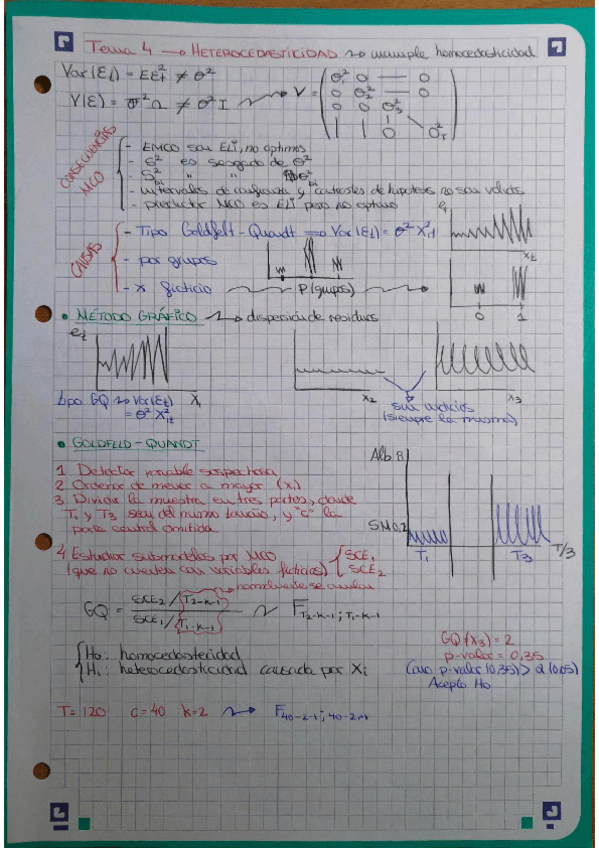 Tema 4 → HETEROCEDASTICIDAD ↝ incumple homocedasticidad
Var(εt) = Eεt² ≠ σ²
V(ε) = σ²Ω ≠ σ²I ↝ V =
σ1² 0 — 0
0 σ2² — 0
0 0 σ3²
| | 0 σT²
CONSECUENCIAS MCO
- EMCO son ELI, no óptimos
- σ² es sesgado de σ²
- S² " "
- intervalos de confianza y contrastes de hipótesis no son válidos
- predictor MCO es ELI pero no óptimo
et
Xt
CAUSAS
- Tipo Goldfelt-Quandt ⇒ Var(εt) = σ² X²it
- por grupos
- x ficticia P(grupos)
0 1
• MÉTODO GRÁFICO ↝ dispersión de residuos
et
X1
X2
X3
tipo GQ ↝ Var(εt) = σ² X²it
sin indicios
(siempre la misma)
• GOLDFELD-QUANDT
1 Detectar variable sospechosa
2 Ordenar de menor a mayor (xi)
3 Dividir la muestra en tres partes, donde
T1 y T3 sean del mismo tamaño, y "c" la
parte central omitida
T1 T3 T/3
4 Estudiar submodelos por MCO SCE1
(que no cuenten con variables ficticias) SCE2
normalmente se anulan
GQ = SCE2/T2-k-1 / SCE1/T1-k-1 ~ F T2-k-1; T1-k-1
H0: homocedasticidad
H1: heterocedasticidad causada por Xi
GQ(X3) = 2
p-valor = 0,35
p-valor (0,35) > α (0,05)
Acepto H0
T=120 c=40 k=2 ↝